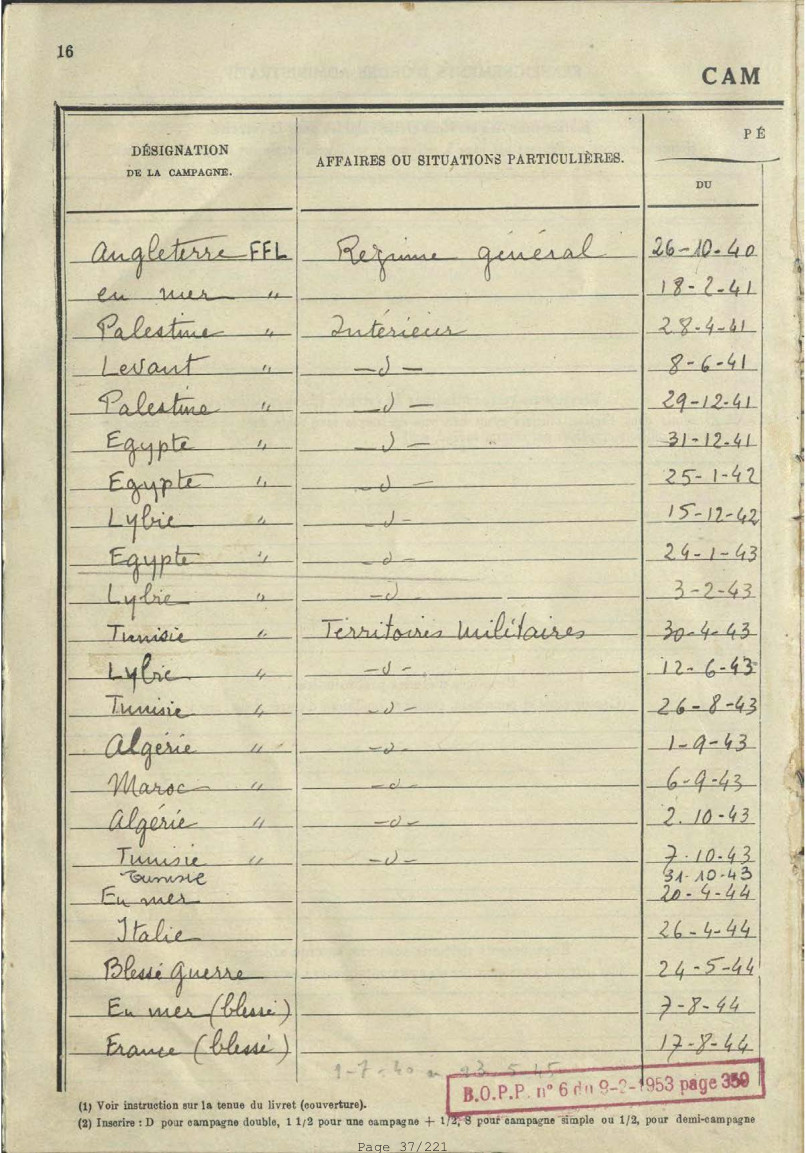 16
CAM
DÉSIGNATION
DE LA CAMPAGNE.
AFFAIRES OU SITUATIONS PARTICULIÈRES.
PÉ
DU
Angleterre FFL Regime général 26-10-40
en mer " 18-2-41
Palestine " Intérieur 28-4-41
Levant " -d- 8-6-41
Palestine " -d- 29-12-41
Egypte " -d- 31-12-41
Egypte " -d- 25-1-42
Lybie " -d- 15-12-42
Egypte " -d- 24-1-43
Lybie " -d- 3-2-43
Tunisie " Territoires Militaires 30-4-43
Lybie " -d- 12-6-43
Tunisie " -d- 26-8-43
Algérie " -d- 1-9-43
Maroc " -d- 6-9-43
Algérie " -d- 2.10-43
Tunisie " -d- 7.10.43
Tunisie 31-10-43
En mer 20-4-44
Italie 26-4-44
Blessé Guerre 24-5-44
En mer (blessé) 7-8-44
France (blessé) 17-8-44
1-7-40 23-5-45
B.O.P.P. n° 6 du 9-2-1953 page 359
(1) Voir instruction sur la tenue du livret (couverture).
(2) Inscrire : D pour campagne double, 1 1/2 pour une campagne + 1/2, S pour campagne simple ou 1/2, pour demi-campagne
Page 37/221